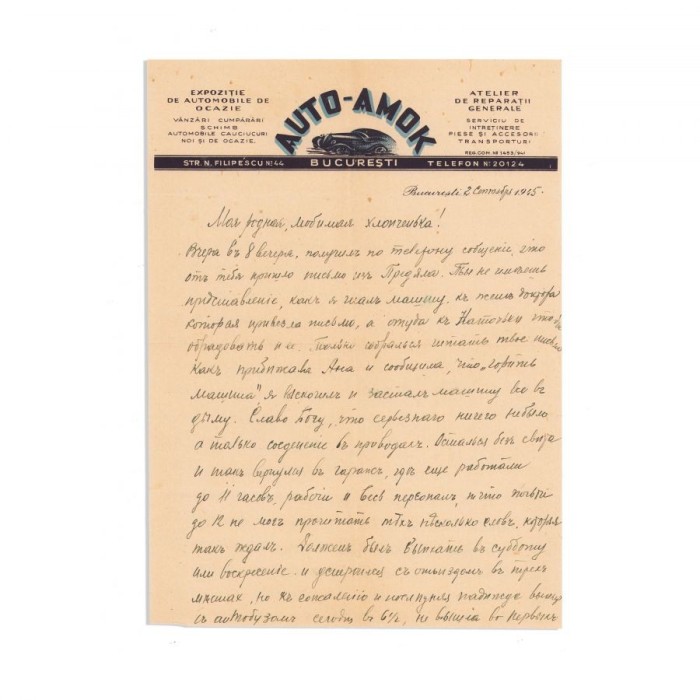 EXPOZIȚIE
DE AUTOMOBILE DE
OCAZIE
VÂNZĂRI CUMPĂRĂRI
SCHIMB
AUTOMOBILE CAUCIUCURI
NOI ȘI DE OCAZIE.
AUTO-AMOK
ATELIER
DE REPARAȚII
GENERALE
SERVICIU DE
ÎNTREȚINERE
PIESE ȘI ACCESORII
TRANSPORTURI
REG.COM. Nº 1453/941
STR. N. FILIPESCU Nº 44 BUCUREȘTI TELEFON Nº 20124
București 2 Сентября 1945.
Моя родная, любимая хлопченька!
Вчера въ 8 вечера, получилъ по телефону сообщеніе, что
отъ тебя пришло письмо изъ Предяла. Ты не имѣешь
представленіе, какъ я гналъ машину, къ женѣ доктора
которая привезла письмо, а оттуда къ Наточкѣ чтобы
обрадовать и ее. Только собрался читать твое письмо
какъ прибѣжала Ана и сообщила, что „горитъ
машина" я выскочилъ и засталъ машину всю въ
дыму. Слава Богу, что серьезнаго ничего небыло
а только соеденіе въ проводахъ. Остался безъ свѣта
и такъ вернулся въ гаражъ, гдѣ еще работали
до 11 часовъ, рабочіи и весь персоналъ, и что почти
до 12 не могъ прочитать тѣхъ нѣсколько словъ, которыя
такъ ждалъ. Долженъ былъ выѣхать въ субботу
или воскресеніе и устроился съ отъѣздомъ въ трехъ
мѣстахъ, но къ сожалѣнію и послѣдняя надежда выѣхать
съ автобусомъ сегодня въ 6½, не вышла во первыхъ